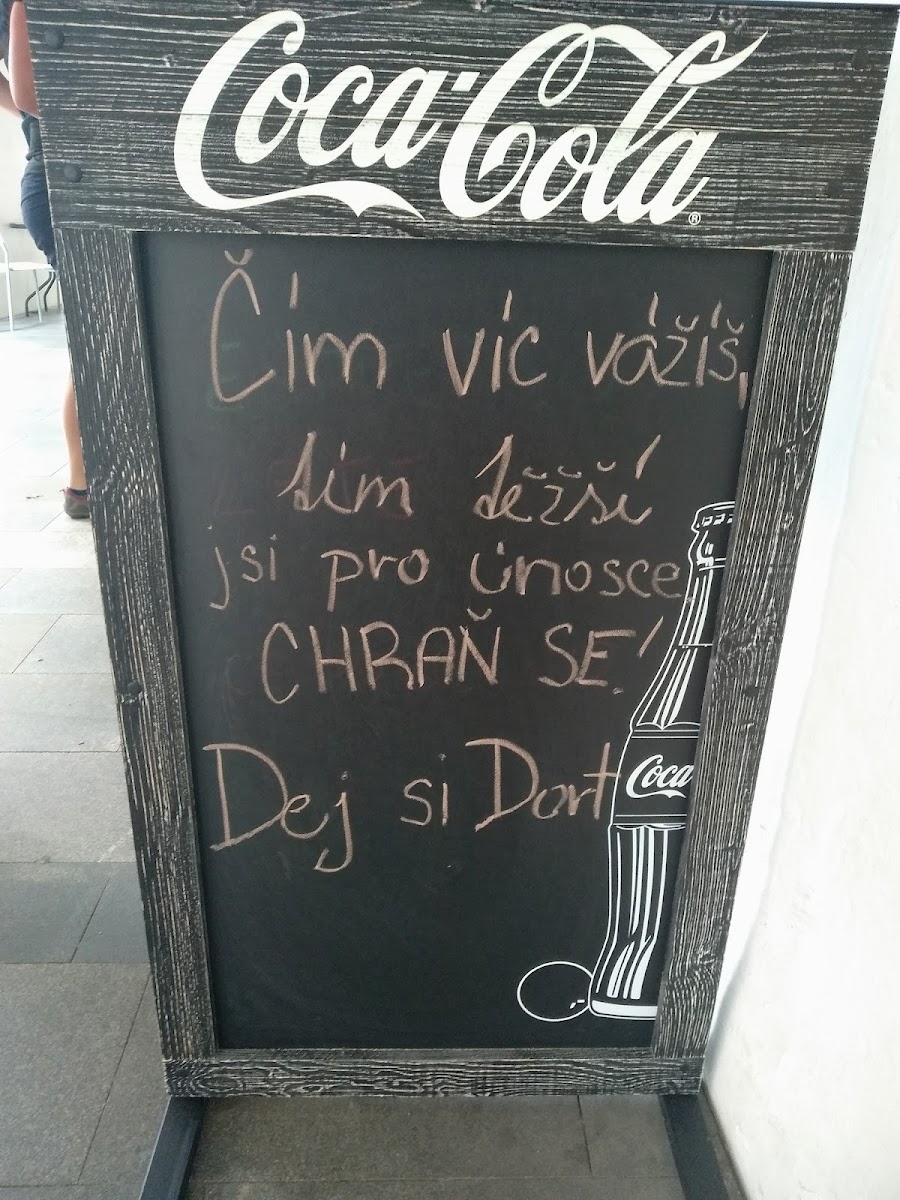 Coca-Cola®
Čím víc vážíš,
tím těžší
jsi pro únosce.
CHRAŇ SE!
Dej si Dort
Coca